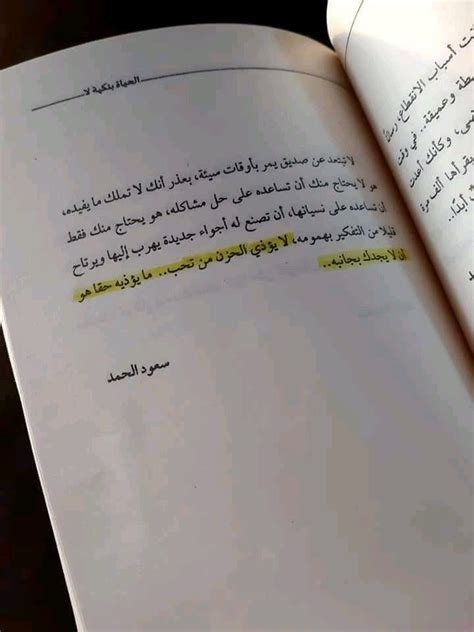 الحياة بنكهة لا
لا تبتعد عن صديق يمر بأوقات سيئة، بعذر أنك لا تملك ما يفيده،
هو لا يحتاج منك أن تساعده على حل مشاكله، هو يحتاج منك فقط
أن تساعده على نسيانها، أن تصنع له أجواء جديدة يهرب إليها ويرتاح
قليلا من التفكير بهمومه، لا يؤذي الحزن من تحب.. ما يؤذيه حقا هو
أن لا يجدك بجانبه..
سعود الحمد
أسباب الانقطاع،
وعميقة.. في وقت
وكأنك
ألف مرة